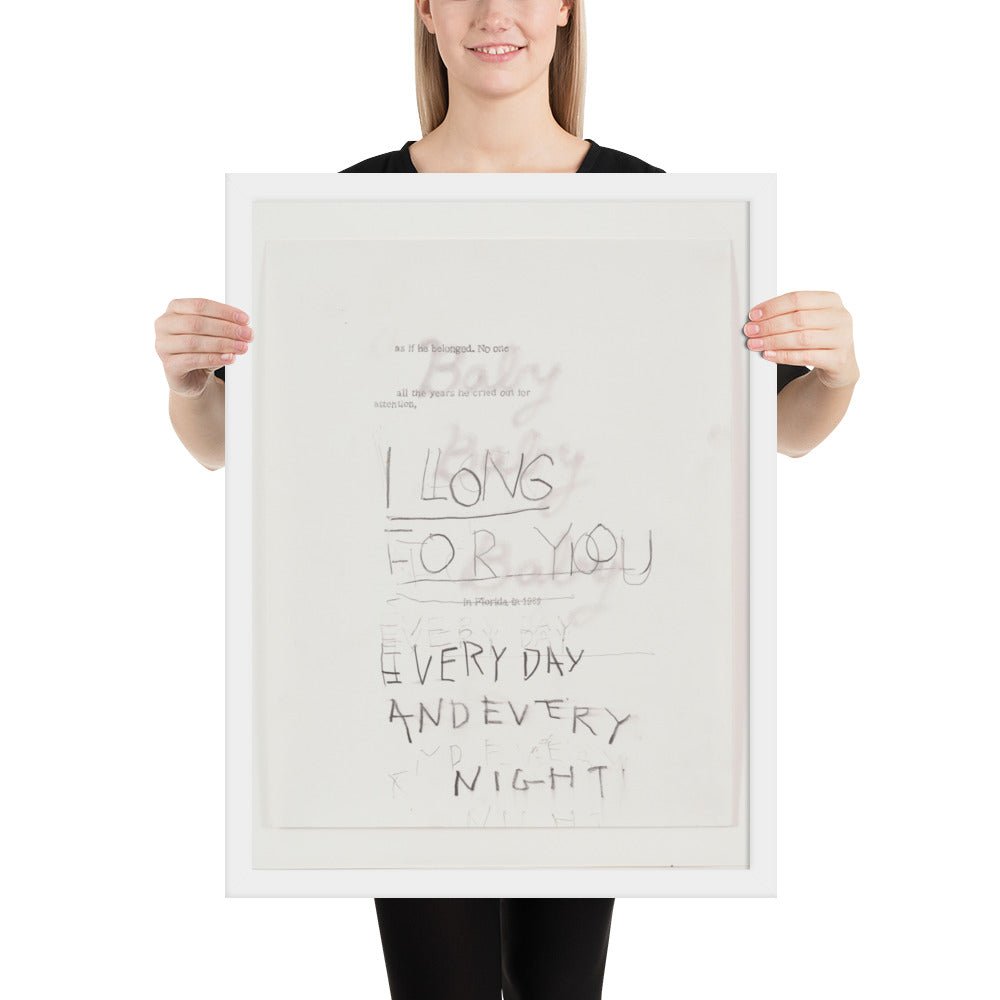 as if he belonged. No one
Baby
all the years he cried out for
attention,
Baby
I LONG
FOR YOU
Baby
in Florida in 1989
EVERY DAY
EVERY DAY
AND EVERY
ND EVE
NIGHT